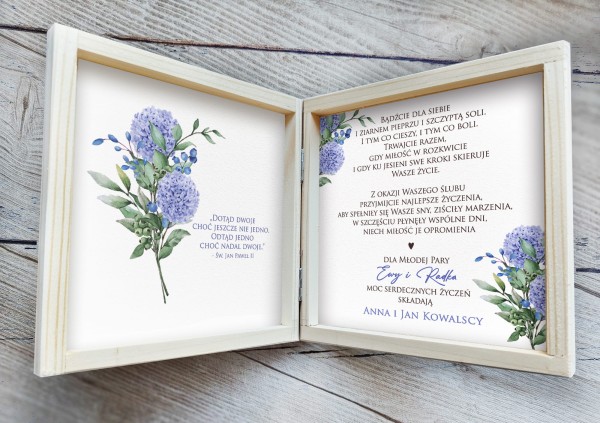 „Dotąd dwoje
choć jeszcze nie jedno.
Odtąd jedno
choć nadal dwoje.”
- Św. Jan Paweł II
Bądźcie dla siebie
i ziarnem pieprzu i szczyptą soli.
I tym co cieszy, i tym co boli.
Trwajcie razem,
gdy miłość w rozkwicie
i gdy ku jesieni swe kroki skieruje
Wasze życie.
Z okazji Waszego Ślubu
przyjmijcie najlepsze życzenia,
aby spełniły się Wasze sny, ziściły marzenia,
w szczęściu płynęły wspólne dni,
niech miłość je opromienia
dla Młodej Pary
Ewy i Radka
moc serdecznych życzeń
składają
Anna i Jan Kowalscy